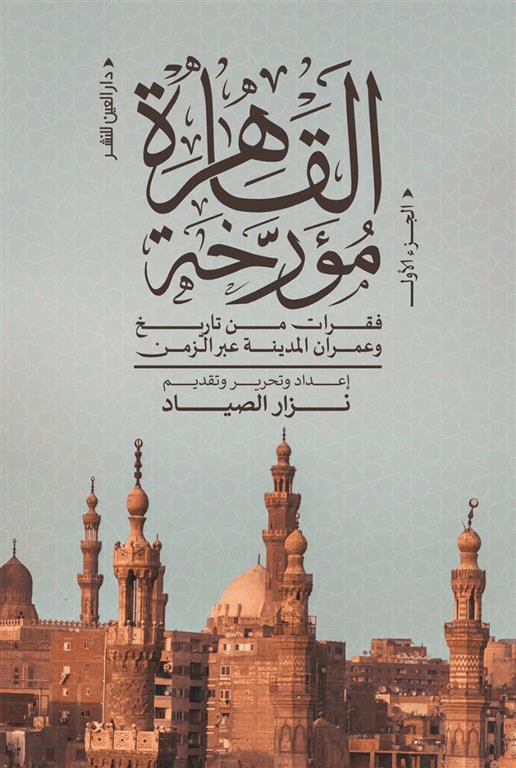 دار العين للنشر
القاهرة
مؤرَّخة
الجزء الأول
فقرات من تاريخ
وعمران المدينة عبر الزمن
إعداد وتحرير وتقديم
نزار الصياد